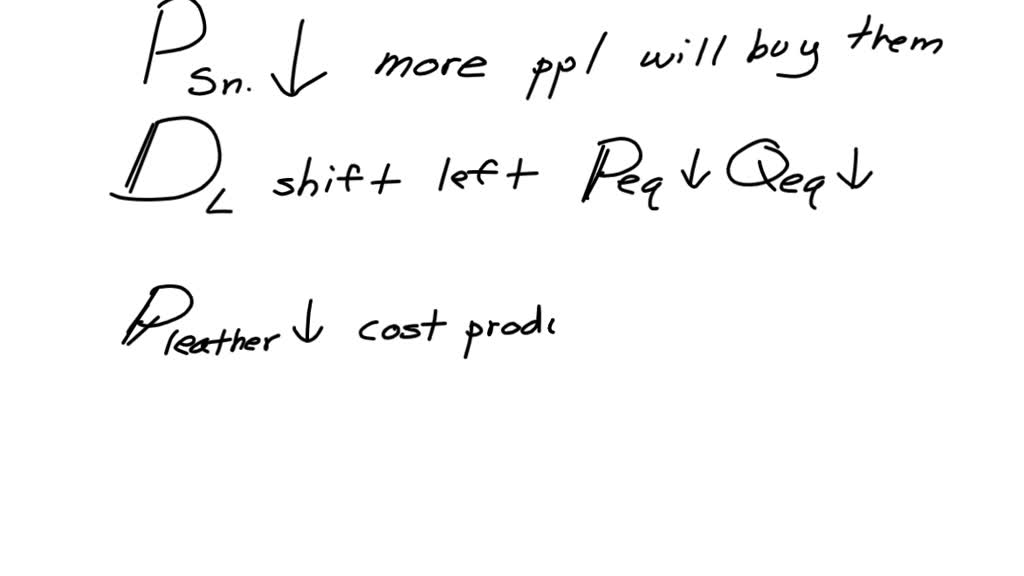 P Sn. ↓ more ppl will buy them
D L shift left Peq ↓ Qeq ↓
P leather ↓ cost prod